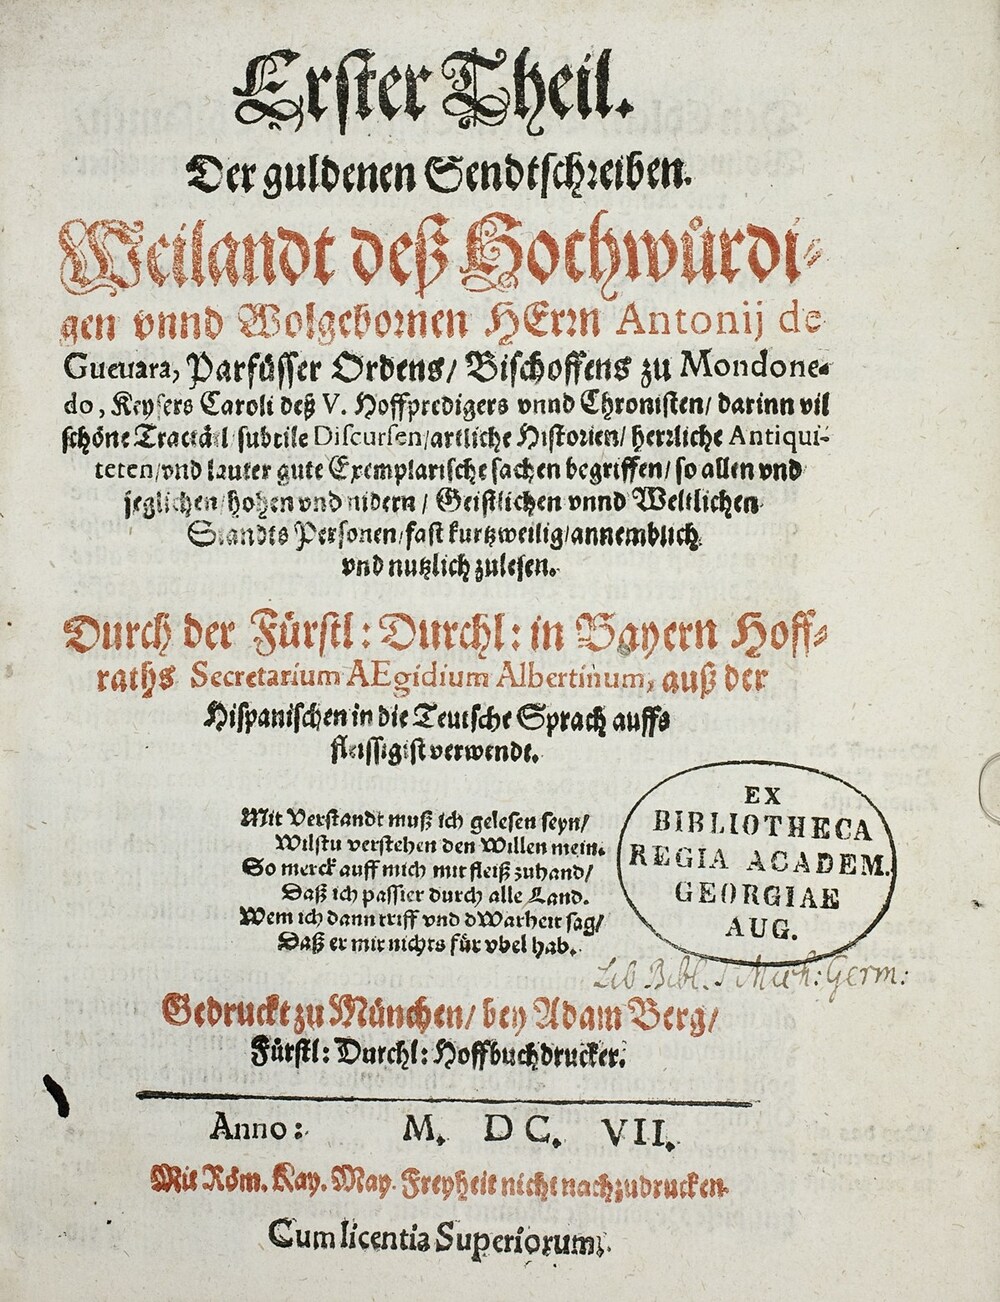 Erster Theil.
Der guldenen Sendtschreiben.
Weilandt deß Hochwürdi-
gen vnnd Wolgebornen HErrn Antonij de
Gueuara, Parfüsser Ordens/ Bischoffens zu Mondone-
do, Keysers Caroli deß V. Hoffpredigers vnnd Chronisten/ darinn vil
schöne Tractätl/ subtile Discursen/ artliche Historien/ herrliche Antiqui-
teten/ vnd lauter gute Exemplarische sachen begriffen/ so allen vnd
jeglichen/ hohen vnd nidern/ Geistlichen vnnd Weltlichen
Standts Personen/ fast kurtzweilig/ annemblich
vnd nutzlich zulesen.
Durch der Fürstl: Durchl: in Bayern Hoff-
raths Secretarium AEgidium Albertinum, auß der
Hispanischen in die Teutsche Sprach auffs
fleissigist verwendt.
Mit Verstandt muß ich gelesen seyn/
Wilstu verstehen den Willen mein.
So merck auff mich mit fleiß zuhand/
Daß ich passier durch alle Land.
Wem ich dann triff vnd dWarheit sag/
Daß er mir nichts für vbel hab.
EX
BIBLIOTHECA
REGIA ACADEM.
GEORGIAE
AUG.
Bibl. S Mich: Germ:
Gedruckt zu München/ bey Adam Berg/
Fürstl: Durchl: Hoffbuchdrucker.
Anno: M. DC. VII.
Mit Röm. Kay. May. Freyheit nicht nachzudrucken.
Cum licentia Superiorum.